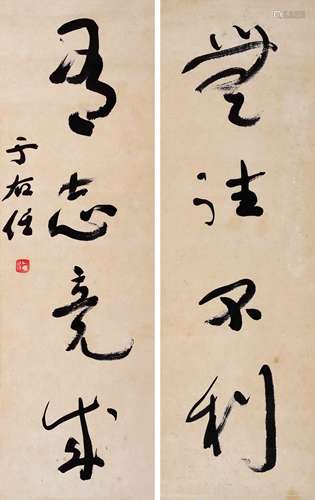 無往不利
有志竟成
于右任